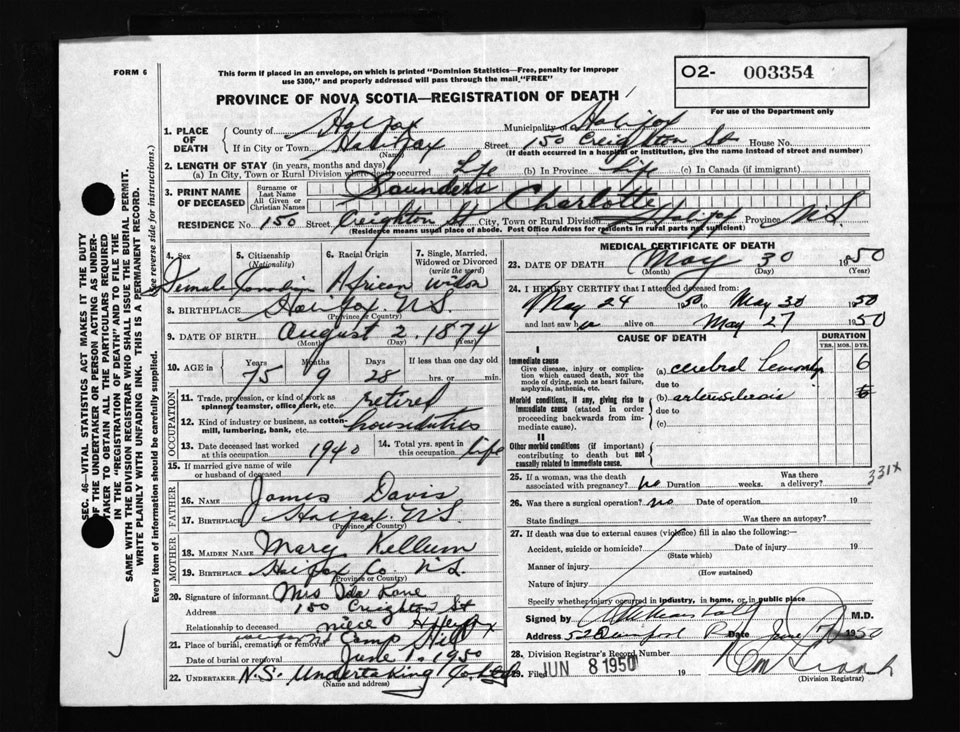 FORM 6
This form if placed in an envelope, on which is printed "Dominion Statistics—Free, penalty for improper
use $300," and properly addressed will pass through the mail, "FREE"
O2- 003354
For use of the Department only
PROVINCE OF NOVA SCOTIA—REGISTRATION OF DEATH
1. PLACE OF DEATH
County of Halifax Municipality of Halifax
If in City or Town Halifax Street 150 Creighton St House No.
(Name) (If death occurred in a hospital or institution, give the name instead of street and number)
2. LENGTH OF STAY (in years, months and days)
(a) In City, Town or Rural Division where death occurred Life (b) In Province Life (c) In Canada (if immigrant)
3. PRINT NAME OF DECEASED
Surname or Last Name Saunders
All Given or Christian Names Charlotte
RESIDENCE No. 150 Street Creighton St City, Town or Rural Division Halifax Province N.S.
(Residence means usual place of abode. Post Office Address for residents in rural parts not sufficient)
4. Sex Female
5. Citizenship (Nationality) Canadian
6. Racial Origin African
7. Single, Married, Widowed or Divorced (write the word) widow
8. BIRTHPLACE Halifax N.S.
(Province or Country)
9. DATE OF BIRTH August 2. 1874
(Month) (Day) (Year)
10. AGE in Years Months Days If less than one day old
75 9 28 hrs. or min.
OCCUPATION
11. Trade, profession, or kind of work as spinner, teamster, office clerk, etc. retired
12. Kind of industry or business, as cotton-mill, lumbering, bank, etc. house duties
13. Date deceased last worked at this occupation 1940
14. Total yrs. spent in this occupation life
15. If married give name of wife or husband of deceased
FATHER
16. NAME James Davis
17. BIRTHPLACE Halifax N.S.
(Province or Country)
MOTHER
18. MAIDEN NAME Mary Kellum
19. BIRTHPLACE Halifax Co. N.S.
(Province or Country)
20. Signature of informant Mrs Ida Kane
Address 150 Creighton St
Relationship to deceased niece Halifax
21. Place of burial, cremation or removal Camp Hill
Date of burial or removal June 1. 1950
22. UNDERTAKER N.S. Undertaking Co.
(Name and address)
MEDICAL CERTIFICATE OF DEATH
23. DATE OF DEATH May 30 1950
(Month) (Day) (Year)
24. I HEREBY CERTIFY that I attended deceased from:
May 24 1950 to May 30 1950
and last saw alive on May 27 1950
CAUSE OF DEATH
DURATION
YRS. MOS. DYS.
I
Immediate cause
Give disease, injury or complication which caused death, NOT the mode of dying, such as heart failure, asphyxia, asthenia, etc.
(a) cerebral 6
due to
Morbid conditions, if any, giving rise to immediate cause (stated in order proceeding backwards from immediate cause).
(b) arteriosclerosis
due to
(c)
II
Other morbid conditions (if important) contributing to death but not causally related to immediate cause.
331x
25. If a woman, was the death associated with pregnancy? no Duration weeks. Was there a delivery?
26. Was there a surgical operation? no Date of operation 19
State findings Was there an autopsy?
27. If death was due to external causes (violence) fill in also the following:—
Accident, suicide or homicide? Date of injury 19
(State which)
Manner of injury
(How sustained)
Nature of injury
Specify whether injury occurred in industry, in home, or in public place
Signed by M.D.
Address 52 Date June 1950
28. Division Registrar's Record Number
29. Filed JUN 8 1950 19
(Division Registrar)
SEC. 46—VITAL STATISTICS ACT MAKES IT THE DUTY
OF THE UNDERTAKER OR PERSON ACTING AS UNDER-
TAKER TO OBTAIN ALL THE PARTICULARS REQUIRED
IN THE "REGISTRATION OF DEATH" AND TO FILE THE
SAME WITH THE DIVISION REGISTRAR WHO SHALL ISSUE THE BURIAL PERMIT.
WRITE PLAINLY WITH UNFADING INK. THIS IS A PERMANENT RECORD.
Every item of information should be carefully supplied. (See reverse side for instructions.)